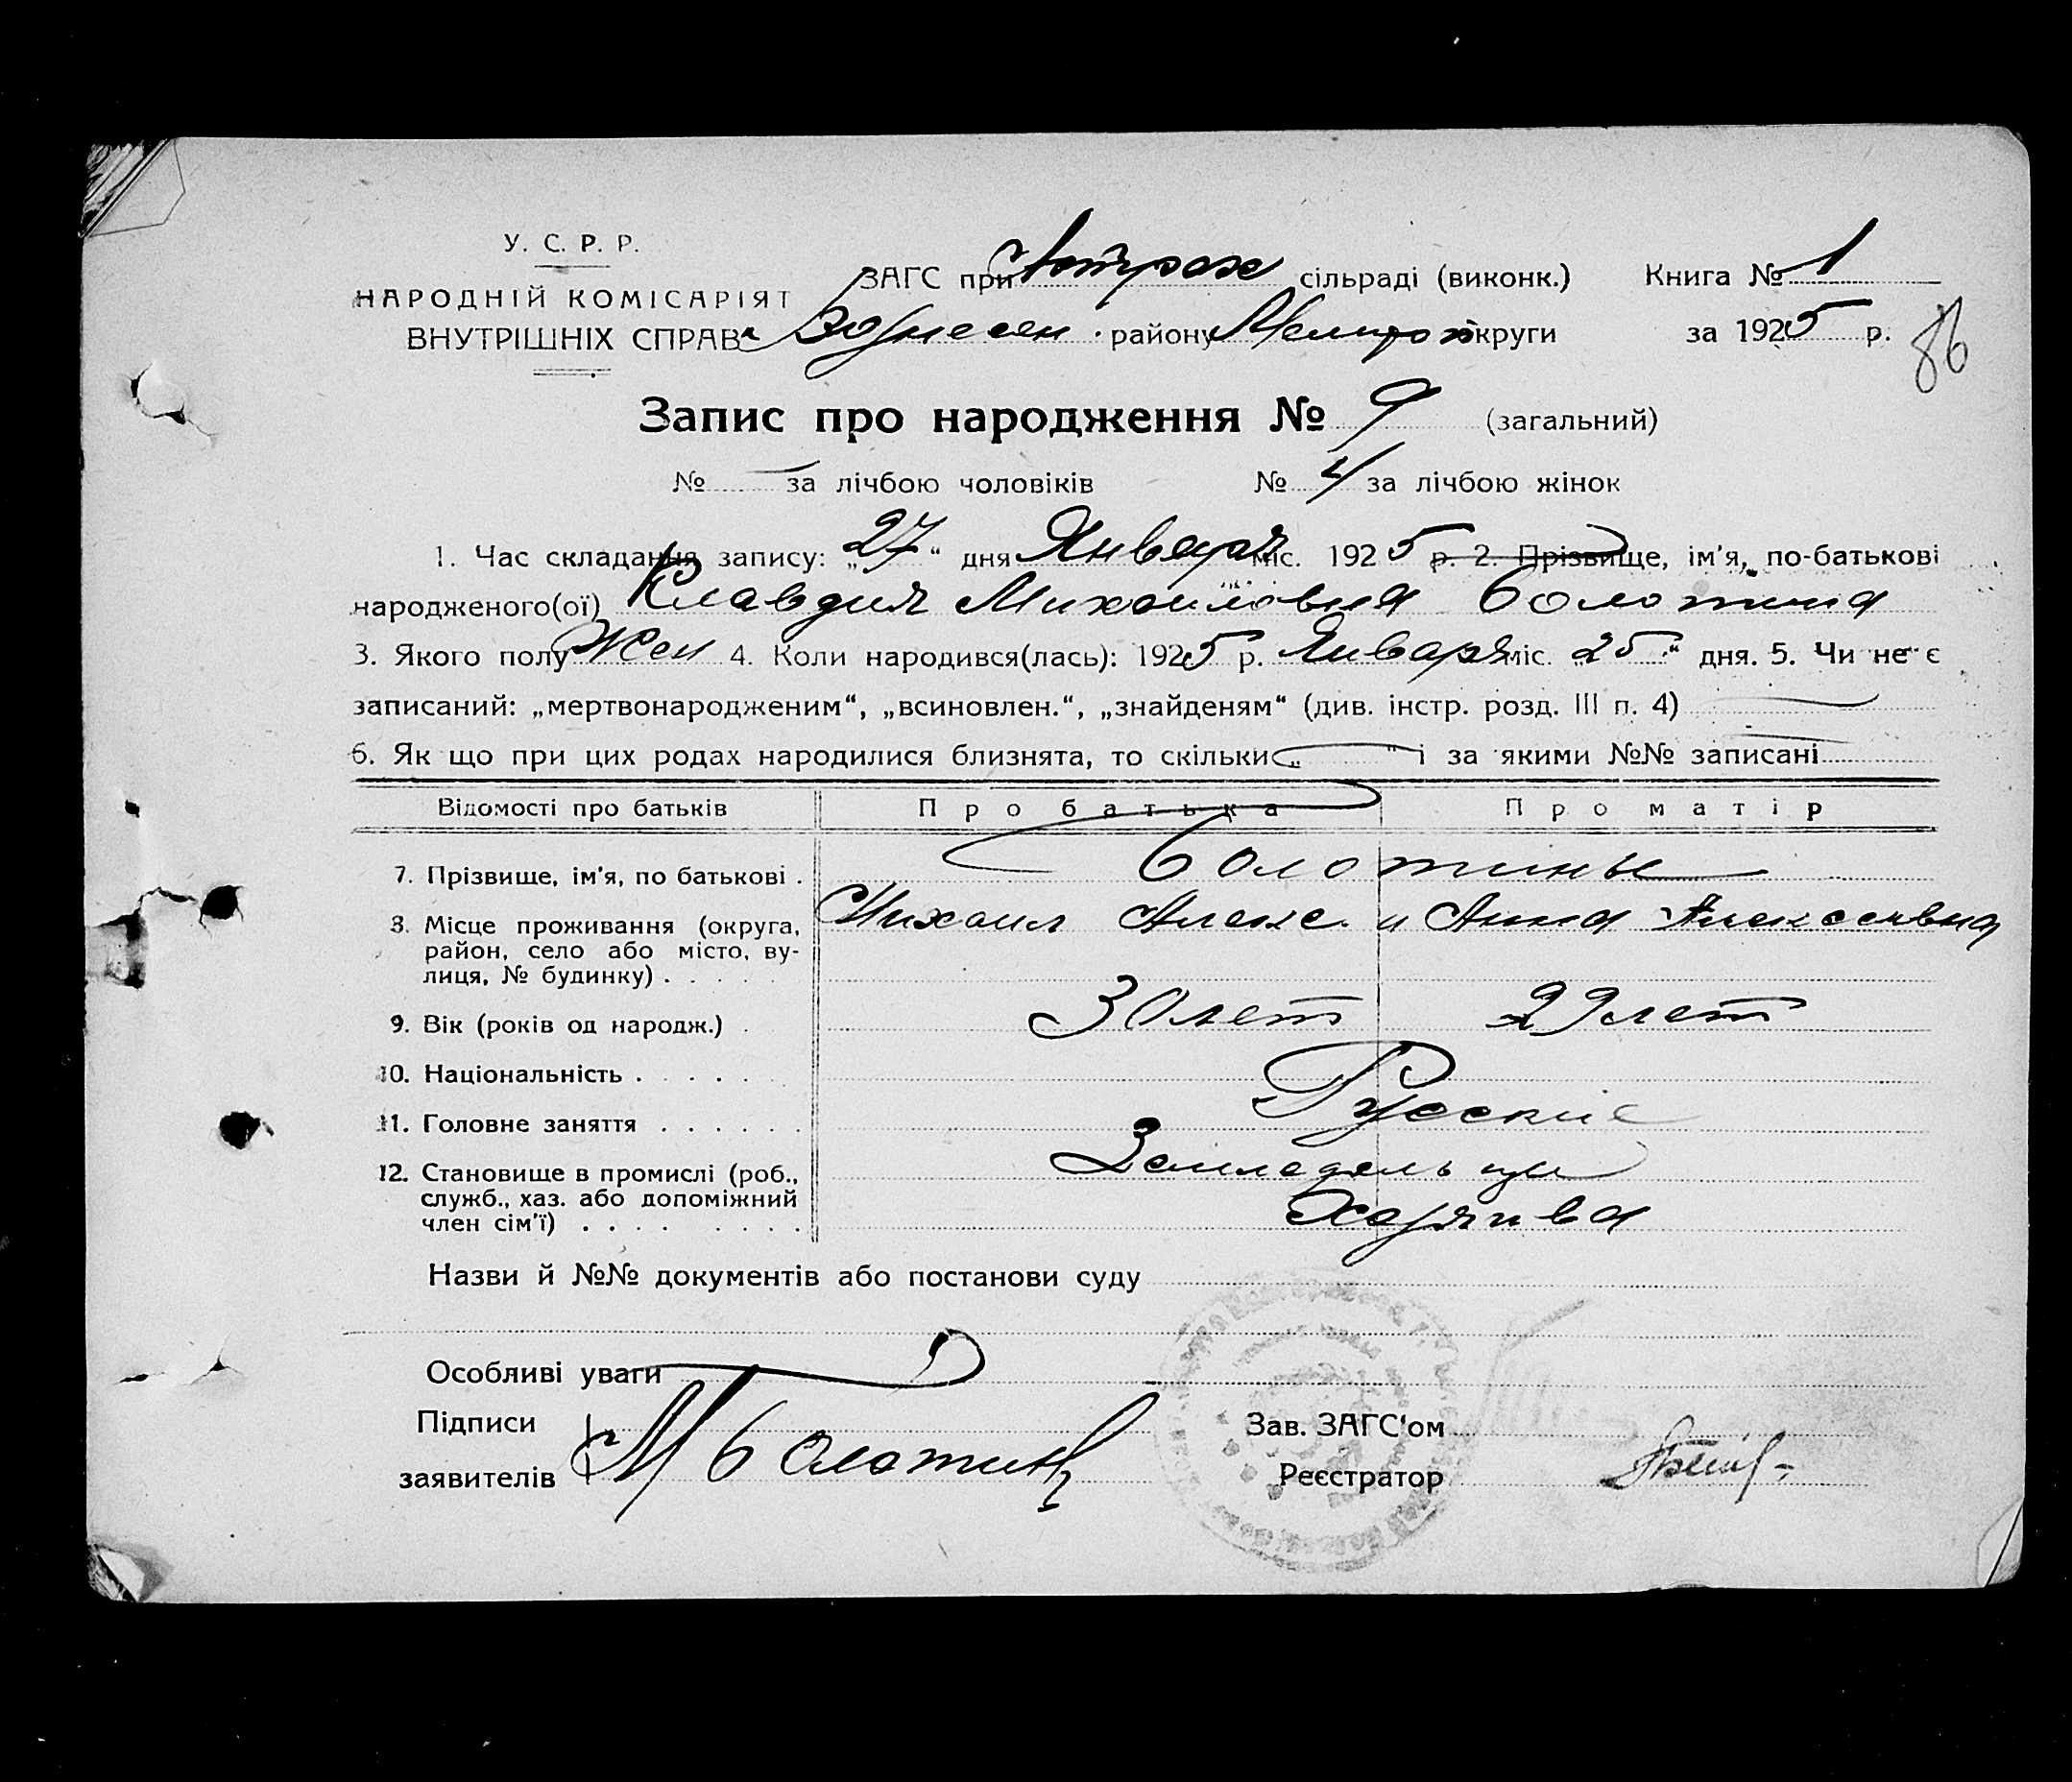 У. С. Р. Р.
НАРОДНІЙ КОМІСАРІЯТ
ВНУТРІШНІХ СПРАВ
ЗАГС при Астрах сільраді (виконк.) Книга № 1
Вознесен району Мелитоп округи за 1925 р.
86
Запис про народження № 9 (загальний)
№ — за лічбою чоловіків № 4 за лічбою жінок
1. Час складання запису: „27“ дня Января міс. 1925 р. 2. Прізвище, ім'я, по-батькові
народженого(ої) Клавдия Михаиловна Болотина
3. Якого полу Жен 4. Коли народився(лась): 1925 р. Января міс. 25“ дня. 5. Чи не є
записаний: „мертвонародженим“, „всиновлен.“, „знайденям“ (див. інстр. розд. III п. 4) —
6. Як що при цих родах народилися близнята, то скільки „ “ і за якими №№ записані
Відомості про батьків Про батька Про матір
7. Прізвище, ім'я, по батькові . Болотины
8. Місце проживання (округа, Михаил Алекс. и Анна Алексеевна
район, село або місто, ву-
лиця, № будинку) . . . . .
9. Вік (років од народж.) . 30 лет 29 лет
10. Національність . . . . . .
11. Головне заняття . . . . . . Русские
12. Становище в промислі (роб., Земледельцы
служб., хаз. або допоміжний Хозяива
член сім'ї) . . . . . . . .
Назви й №№ документів або постанови суду
Особливі уваги
Підписи Зав. ЗАГС'ом
заявителів М Болотин Реєстратор